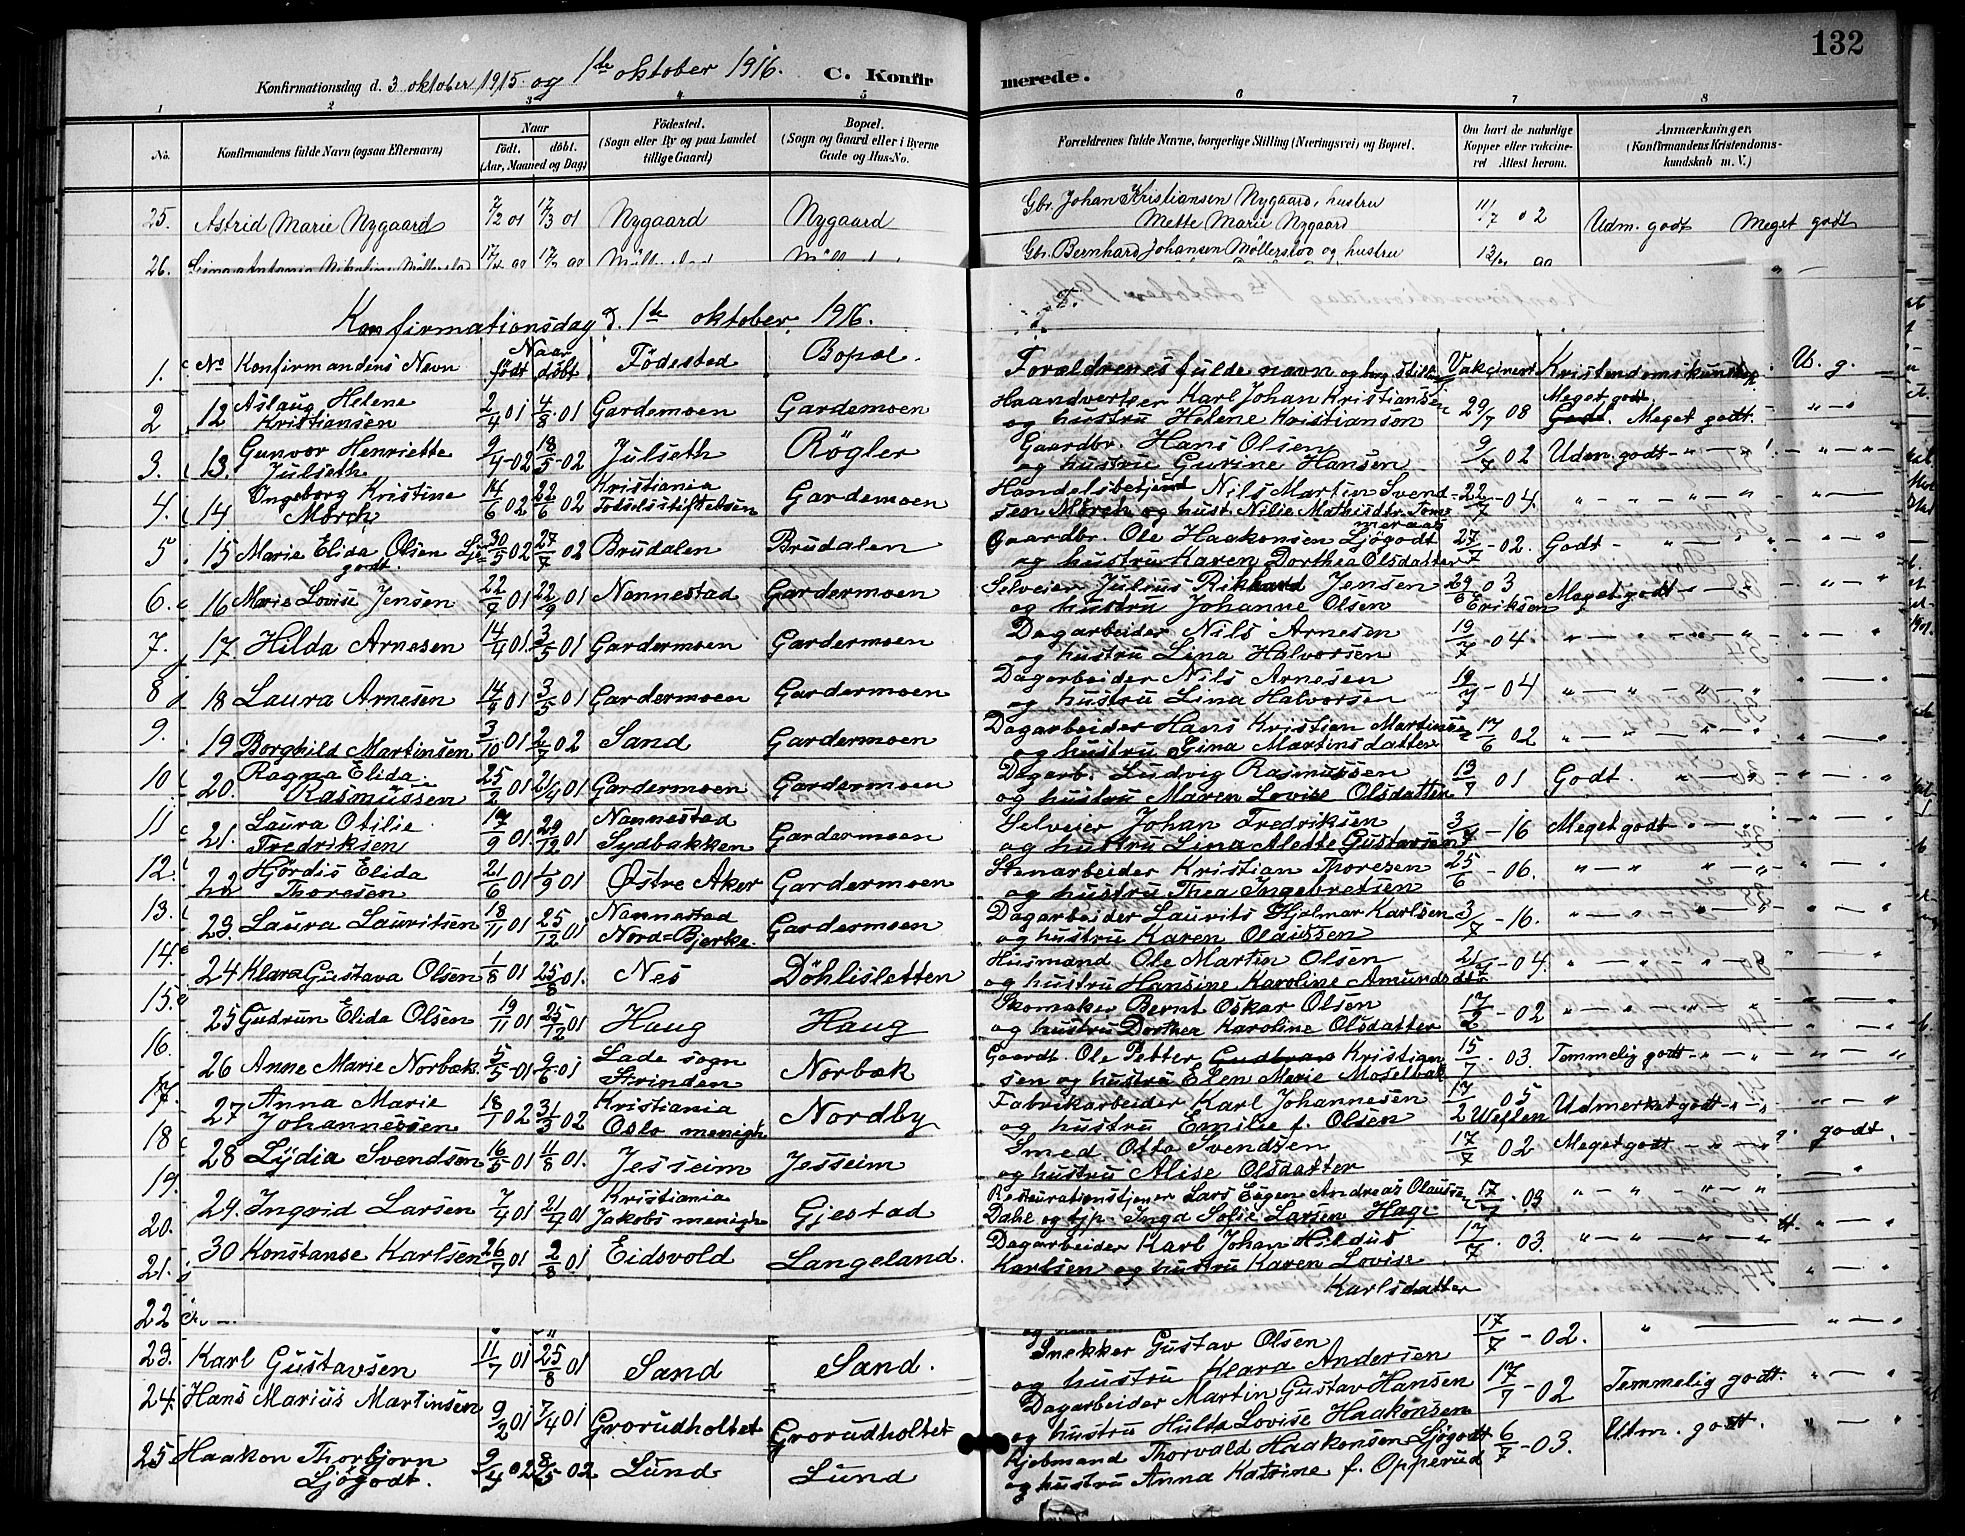 132
Konfirmationsdag d. 3 oktober 1915 og 1ste oktober 1916. C. Konfir merede.
1 2 3 4 5 6 7 8
No. Konfirmandens fulde Navn (ogsaa Efternavn) Naar født. døbt. (Aar, Maaned og Dag) Fødested. (Sogn eller By og paa Landet tillige Gaard) Bopæl. (Sogn og Gaard eller i Byerne Gade og Hus-No. Forældrenes fulde Navne, borgerlige Stilling (Næringsvei) og Bopæl. Om havt de naturlige Kopper eller vakcineret Attest herom. Anmærkninger. (Konfirmandens Kristendomskundskab m. V.)
25. Astrid Marie Nygaard 7/2 01 17/3 01 Nygaard Nygaard Gbr. Johan Kristiansen Nygaard, hustru 11/7 02 Udm. godt Meget godt
Mette Marie Nygaard
26. Gbr. Bernhard Johansen Møllerstad og hustru
Konfirmationsdag d. 1ste oktober 1916.
No Konfirmandens Navn Naar født døbt Födested Bopæl. Forældrenes fulde navn og brg. stilling Vakcinert Kristendomskundsk.
1. U. g.
12 Aslaug Helene 2/4 01 4/8 01 Gardemoen Gardemoen Haandverker Karl Johan Kristiansen 29/7 08 Meget godt
Kristiansen og hustru Helene Kristianson Godt. Meget godt.
13. Gunvor Henriette 9/4-02 18/5-02 Julseth Rögler Gaardbr. Hans Olsen 9/7 02 Udm. godt - " - "
Julseth og hustru Gurine Hansen
14 Ingeborg Kristine 14/6 02 22/6 02 Kristiania Gardemoen Handelsbetjent Nils Martin Svend- 22/7 - 04. " - " - "
Mörch Fodselsstiftelsen sen Mörch og hust. Nilie Mathisdtr. Tom-
meraas
15 Marie Elida Olsen Ljö- 30/5 02 27/7 02 Brudalen Brudalen Gaardbr. Ole Haakonsen Ljögodt 27/7 - 02. Godt - " - "
godt. og hustru Karen Dorthea Olsdatter
16 Marie Lovise Jensen 22/7 01 22/9 01 Nannestad Gardermoen Selveier Julius Rikhard Jensen 29/8 03 Meget godt - " -
og hustru Johanne Olsen Eriksen
17. Hilda Arnesen 14/4 01 3/5 01 Gardermoen Gardermoen Dagarbeider Nils Arnesen 19/7 - 04. " - " - "
og hustru Lina Halvorsen
18 Laura Arnesen 14/4 01 3/5 01 Gardermoen Gardermoen Dagarbeider Nils Arnesen 19/7 - 04 " - " - "
og hustru Lina Halvorsen
19 Borghild Martinsen 3/10 01 2/7 02 Sand Gardermoen Dagarbeider Hans Kristian Martinsen 17/6 02 " - " - "
og hustru Gina Martinsdatter
20. Ragna Elida 25/2 01 21/4 01 Gardermoen Gardermoen Dagarb. Ludvig Rasmussen 13/7 01 Godt. " - "
Rasmussen og hustru Maren Lovise Olsdatter
21. Laura Otilie 17/9 01 29/12 01 Nannestad Gardermoen Selveier Johan Fredriksen 3/7 - 16 Meget godt - " -
Fredriksen Sydbakken og hustru Lina Alette Gustavsen
22 Hjördis Elida 21/6 01 1/9 01 Østre Aker Gardermoen Stenarbeider Kristian Thoresen 25/6 - 06. " - " - "
Thoresen og hustru Thea Ingebretsen
23. Laura Lauritsen 18/11 01 25/12 01 Nannestad Gardermoen Dagarbeider Laurits Hjalmar Karlsen 3/7 - 16. " - " - "
Nord-Bjerke. og hustru Karen Olaussen
24 Klara Gustava Olsen 1/8 01 25/8 01. Nes Döhlisletten Husmand Ole Martin Olsen 21/7 - 04. " - " - "
og hustru Hansine Karoline Amundsdtr
25 Gudrun Elida Olsen 19/11 01 25/12 01 Haug Haug Skomaker Bernt Oskar Olsen 17/2 - 02 " - " - "
og hustru Dorthea Karoline Olsdatter
26 Anne Marie Norbæk 5/5-01 9/6-01 Lade sogn Norbæk Gaardb. Ole Petter Gudbran Kristian- 15/7 - 03. Temmelig godt - " - "
Strinden sen og hustru Elen Marie Moselbak
27 Anna Marie 18/7 02 31/3 02 Kristiania Nordby Fabrikarbeider Karl Johannesen 17/2 05 Udmerket godt - " - "
Johannessen Oslo menigh og hustru Emilie f. Olsen
28 Lydia Svendsen 16/5 01 11/8 01. Jesseim Jesseim Smed Otto Svendsen 17/7 02 Meget godt - " - "
og hustru Alise Olsdatter godt.
29. Ingrid Larsen 7/4 01 21/4 01 Kristiania Gjestad Restaurationstjener Lars Eugen Andreas Olaussen 17/7 - 03 " - " - "
Jakobs menigh Dahl og tjp. Inga Sofie Larsen Hage
30 Konstanse Karlsen 26/7 01 2/8 01 Eidsvold Langeland. Dagarbeider Karl Johan Hildus 17/7 - 03. " - " - "
Karlsen og hustru Karen Lovise
Karlsdatter
2
3.
4.
5
6.
7.
8
9.
10
11
12.
13.
14.
15.
16.
17.
18
19.
20.
21.
22
23. Karl Gustavsen 11/7 01 25/8 01 Sand Sand. Snekker Gustav Olsen 17/7 - 02. "
og hustru Klara Andersen
24. Hans Marius Martinsen 9/2 01 7/4 01 Grorudholtet Grorudholtet Dagarbeider Martin Gustav Hansen 17/7 - 02 Temmelig godt.
og hustru Hulda Lovise Haakonsen
25 Haakon Thorbjorn 9/4 02 8/5 02 Lund Lund Kjøbmand Thorvald Haakonsen Ljögodt 6/7 - 03. Utm. godt.
Ljögodt. og hustru Anna Katrine f. Opperud